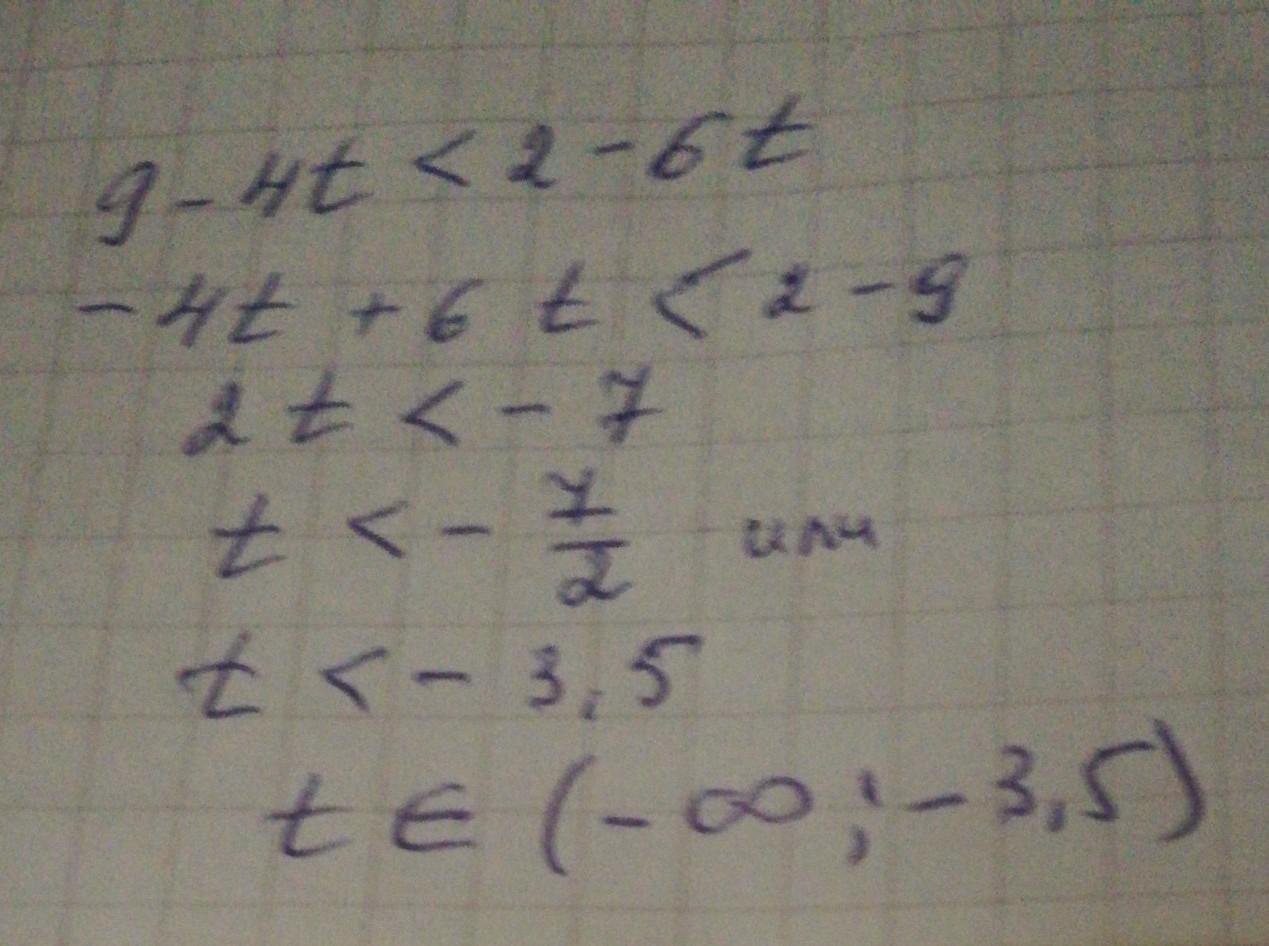 9 - 4t < 2 - 6t
- 4t + 6t < 2 - 9
2t < - 7
t < - 7/2 или
t < - 3,5
t ∈ (- ∞ ; - 3,5)